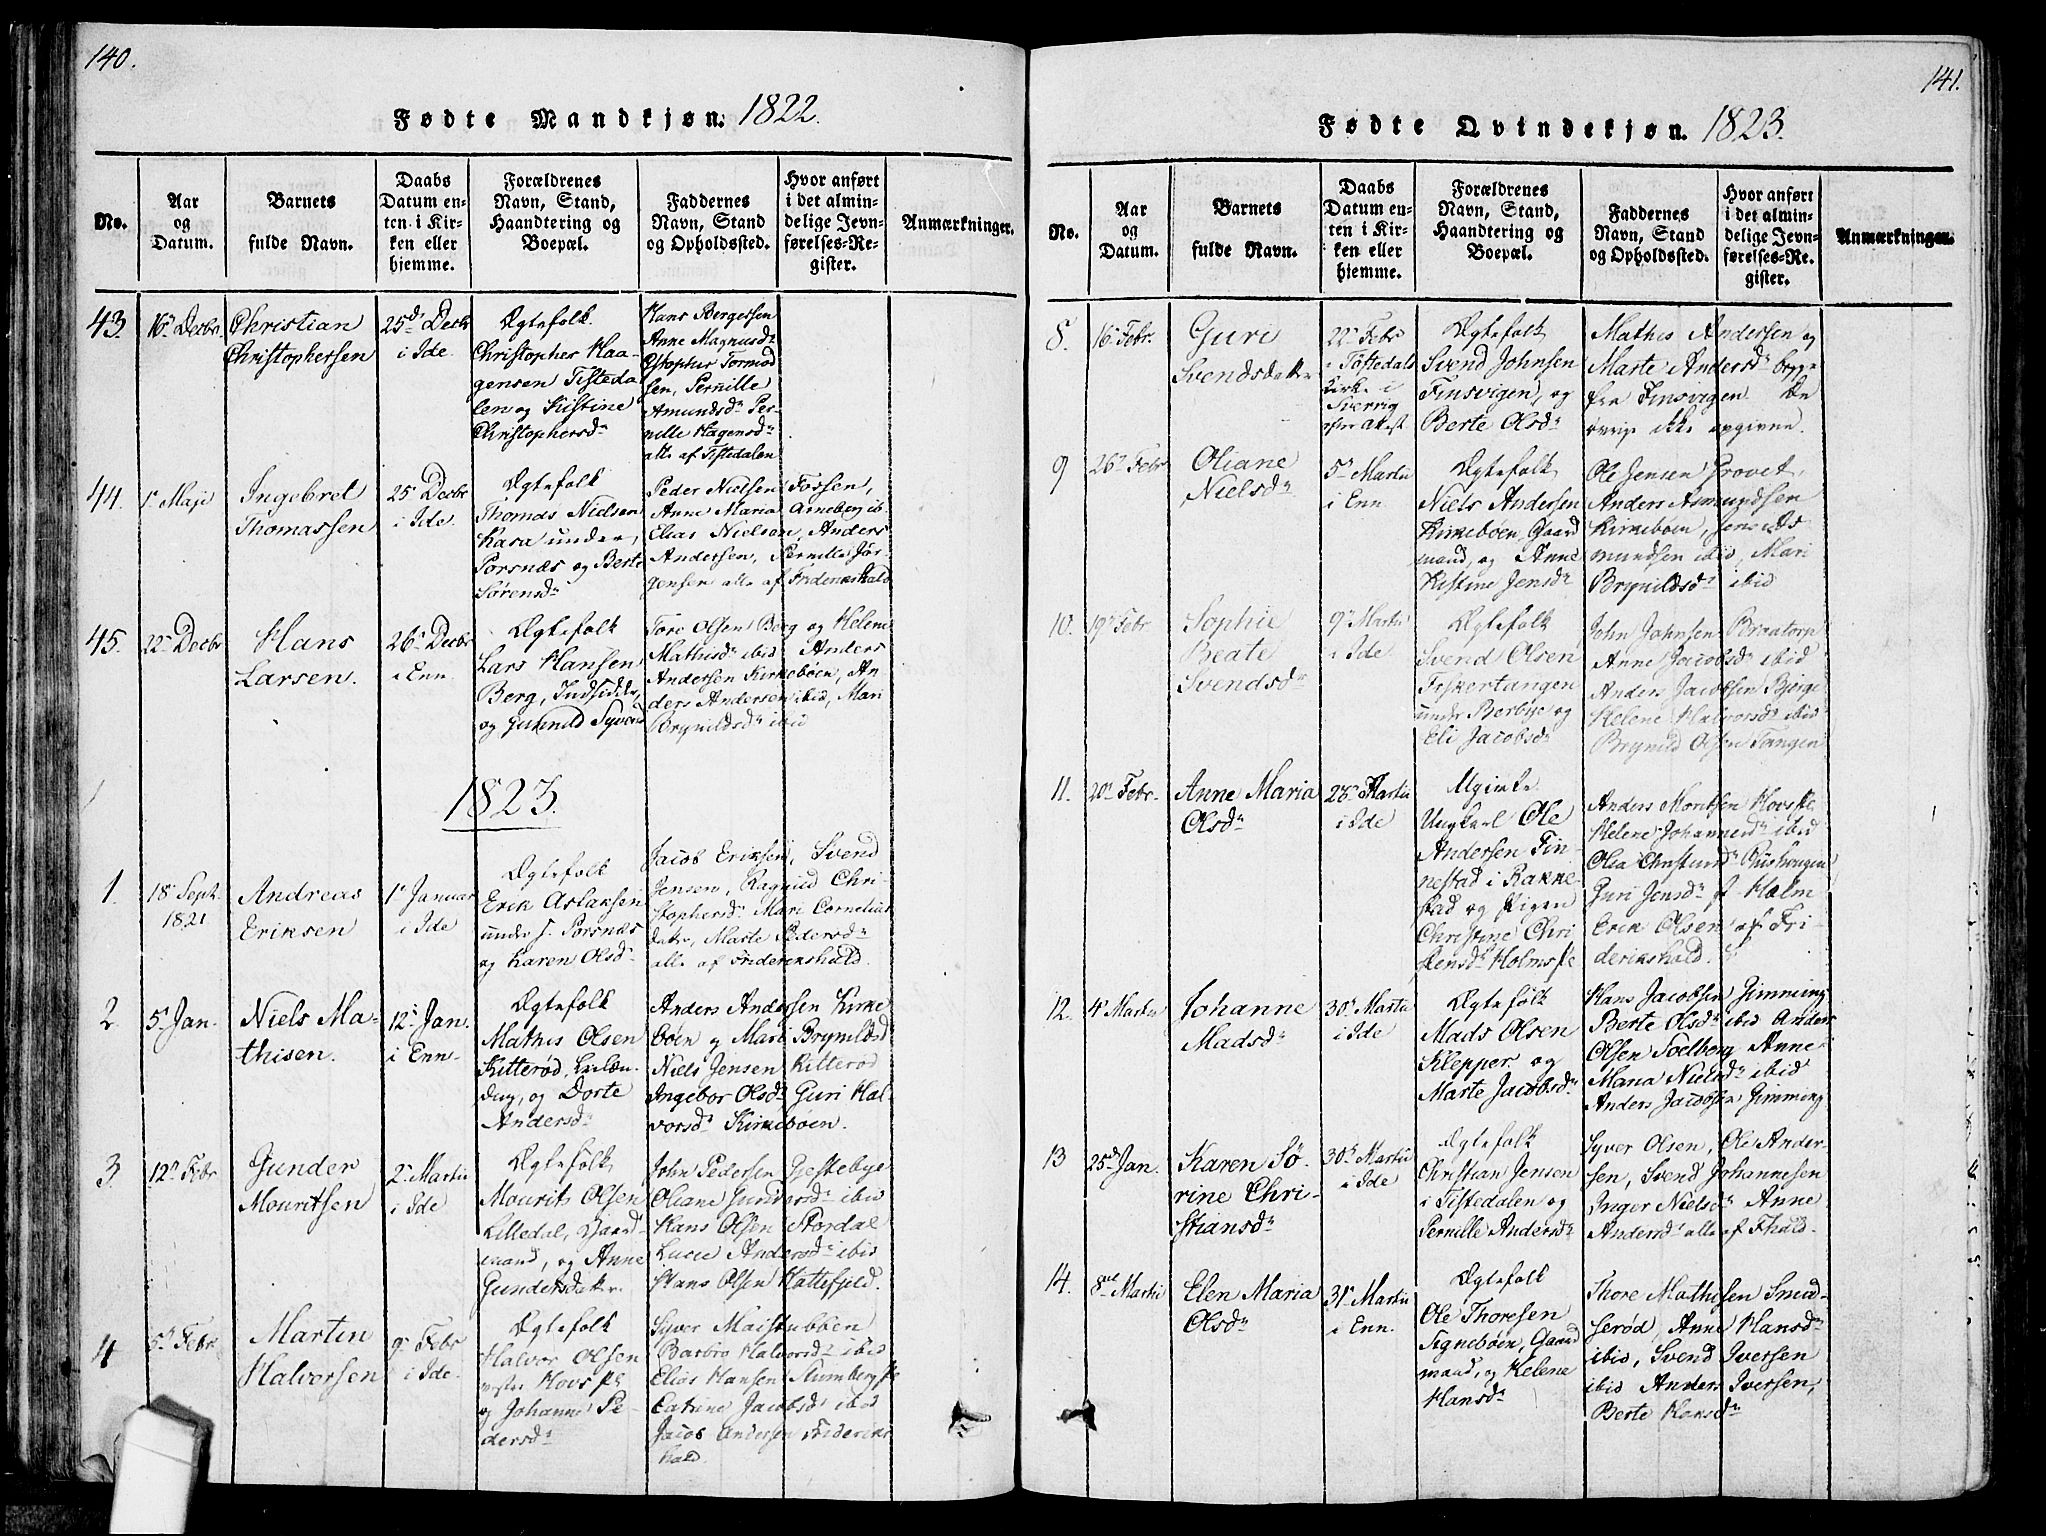 140.
Fødte Mandkjøn. 1822.
No.
Aar
og
Datum.
Barnets
fulde Navn.
Daabs
Datum en-
ten i Kir-
ken eller
hjemme.
Forældrenes
Navn, Stand,
Haandtering og
Boepæl.
Faddernes
Navn, Stand
og Opholdssted.
Hvor anført
i det almin-
delige Jevn-
førelses-Re-
gister.
Anmærkninger.
43.
16 Decbr.
Christian
Christophersen
25d Decbr
i Ide.
Ægtefolk
Christopher Haa-
gensen Tisteda-
len og Kistine
Christophersdr
Hans Børgessen
Anne Magnusdr
Christopher Tormod
sen, Pernille
Amundsdr Per-
nille Hagensdr
alle af Tistedalen
44.
1 Maji
Ingebret
Thomassen
25 Decbr
i Ide.
Ægtefolk
Thomas Nielsen
Kasa under
Porsnæs og Berte
Sørensdr
Peder Nielsen Fossen,
Anne Maria Arneberg ib.
Elias Nielsen, Anders
Andersen, Pernille Jør-
gensen alle af Friderikshald
45.
22 Decbr
Hans
Larsen.
26 Decbr
i Enn.
Ægtefolk
Lars Hansen
Berg, Indsidder,
og Gunild Syversd
Tore Olsen Berg og Helene
Mathisdr ibid Anders
Andersen Kirkebøen, An
ders Andersen ibid, Mari
Brynildsdr ibid
1823.
1.
18 Sept.
1821
Andreas
Eriksen
1 Januar
i Ide
Ægtefolk
Erik Aslaksen
under Porsnæs
og Karen Olsdr
Jacob Eriksen, Svend
Jensen, Ragnild Chri-
stophersdr Mari Cornelius
datter, Marte Pedersdr
alle af Friderikshald.
2
5 Jan.
Niels Ma-
thisen.
12 Jan.
i Enn.
Ægtefolk
Mathis Olsen
Kitterød,
og Dorte
Andersdr
Anders Andersen Kirke
bøen og Mari Brynildsd
Niels Jensen Kitterød
Ingebor Olsdr Guri Hal
vorsdr Kirkebøen.
3.
12 Febr
Gunder
Mouritsen
2 Martii
i Ide
Ægtefolk
Mourits Olsen
Lilledal, Gaard-
mand, og Anne
Gundersdatter.
John Pedersen Gjestebye
Oliane Gundersdr ibid
Hans Olsen Stordal
Lucie Andersdr ibid
Hans Olsen Hattefjeld.
4
5 Febr
Martin
Halvorsen
9 Febr
i Ide.
Ægtefolk
Halvor Olsen
Hovs pl
og Johanne Pe-
dersdr
Syver Maistubben
Barbro Halvorsdr ibid
Elias Hansen Stumberg pl
Catrine Jacobsdr ibid
Jacob Andersen Frideriks
hald
141.
Fødte Qvindekjøn. 1823.
No.
Aar
og
Datum.
Barnets
fulde Navn.
Daabs
Datum en-
ten i Kir-
ken eller
hjemme.
Forældrenes
Navn, Stand,
Haandtering og
Boepæl.
Faddernes
Navn, Stand
og Opholdssted.
Hvor anført
i det almin-
delige Jevn-
førelses-Re-
gister.
Anmærkninger.
8.
16 Febr.
Guri
Svendsdatter
22 Febr
i Töftedals
Kirke i
Sverrig
efter Attest.
Ægtefolk
Svend Johnsen
Finsvigen, og
Berte Olsdr
Mathis Andersen og
Marte Andersdr begge
fra Finsvigen. De
øvrige ikke opgivne.
9
26 Febr
Oliane
Nielsdr
5 Martii
i Enn.
Ægtefolk
Niels Andersen
Kirkebøen, Gaard
mand, og Anne
Kistine Jensdr
Ole Jensen Provet,
Anders Asmundsen
Kirkebøen, Jens As
mundsen ibid, Mari
Brynildsdr ibid
10.
19 Febr
Sophie
Beate
Svendsdr
9 Martii
i Ide
Ægtefolk
Svend Olsen
Fiskertangen
under Berbye og
Eli Jacobsdr
John Johnsen Braatorp
Anne Jacobsdr ibid
Anders Jacobsen Bjerge
Helene Halvorsdr ibid
Brynild Olsen Tangen
11.
20 Febr.
Anne Maria
Olsdr
28 Martii
i Ide
Ugivte
Ungkarl Ole
Andersen Fin-
nestad i Rakke-
stad og Pigen
Christine Chri
stensdr Holms pl
Anders Moritsen Hovs pl
Helene Johannesdr ibid
Olia Christiansdr Bushaugen
Guri Jensdr Holm
Erik Olsen af Fri-
derikshald.
12.
4 Martii
Johanne
Madsdr
30 Martii
i Ide
Ægtefolk
Mads Olsen
Klepper og
Marte Jacobsdr
Hans Jacobsen Gimming
Berte Olsdr ibid Anders
Olsen Soelberg Anne
Maria Nielsdr ibid
Anders Jacobsen Gimming
13
25d Jan.
Karen Sø-
rine Chri-
stiansdr
30 Martii
i Ide
Ægtefolk
Christian Jensen
i Tistedalen og
Pernille Andersdr
Syver Olsen, Ole Ander-
sen, Svend Johannesen
Inger Nielsdr Anne
Andersdr alle af Fhald.
14.
8de Martii
Elen Maria
Olsdr
31 Martii
i Enn.
Ægtefolk
Ole Thoresen
Signebøen, Gaard
mand, og Helene
Hansdr
Thore Mathisen Smed-
serød, Anne Hansdr
ibid, Svend Iversen
ibid Anders Iversen,
Berte Hansdr